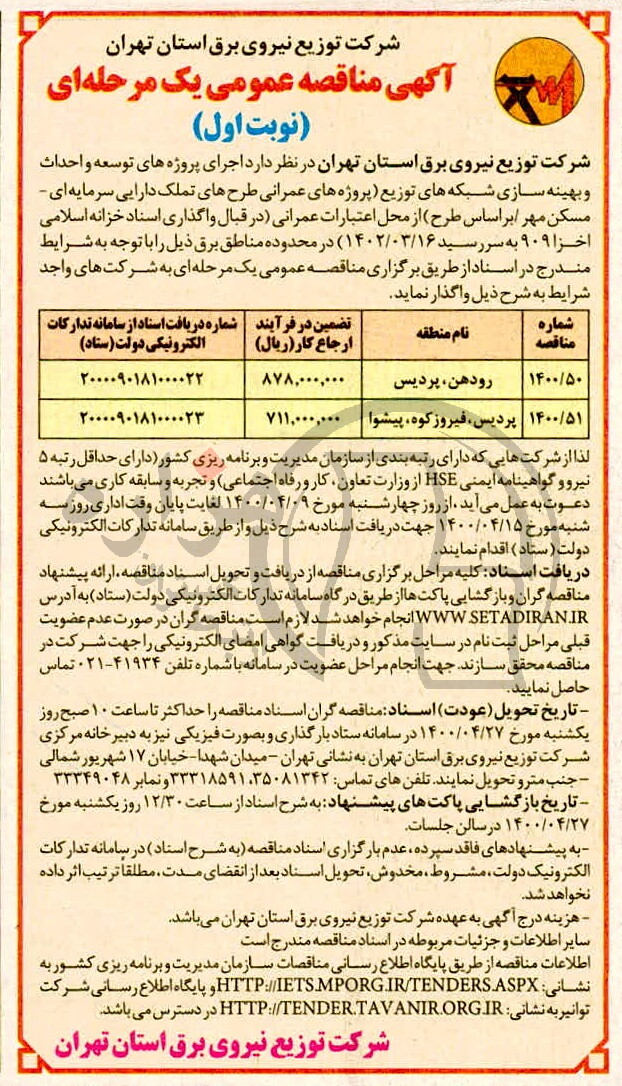 شرکت توزیع نیروی برق استان تهران
آگهی مناقصه عمومی یک مرحله‌ای
(نوبت اول)
شرکت توزیع نیروی برق استان تهران در نظر دارد اجرای پروژه های توسعه و احداث
و بهینه سازی شبکه های توزیع (پروژه های عمرانی طرح های تملک دارایی سرمایه ای -
مسکن مهر / براساس طرح) از محل اعتبارات عمرانی (در قبال واگذاری اسناد خزانه اسلامی
اخزا ۹۰۹ به سررسید ۱۴۰۲/۰۳/۱۶) در محدوده مناطق برق ذیل را با توجه به شرایط
مندرج در اسناد از طریق برگزاری مناقصه عمومی یک مرحله ای به شرکت های واجد
شرایط به شرح ذیل واگذار نماید.
شماره مناقصه | نام منطقه | تضمین در فرآیند ارجاع کار (ریال) | شماره دریافت اسناد از سامانه تدارکات الکترونیکی دولت (ستاد)
۱۴۰۰/۵۰ | رودهن، پردیس | ۸۷۸,۰۰۰,۰۰۰ | ۲۰۰۰۰۹۰۱۸۱۰۰۰۰۲۲
۱۴۰۰/۵۱ | پردیس، فیروزکوه، پیشوا | ۷۱۱,۰۰۰,۰۰۰ | ۲۰۰۰۰۹۰۱۸۱۰۰۰۰۲۳
لذا از شرکت هایی که دارای رتبه بندی از سازمان مدیریت و برنامه ریزی کشور (دارای حداقل رتبه ۵
نیرو و گواهینامه ایمنی HSE از وزارت تعاون، کار و رفاه اجتماعی) و تجربه و سابقه کاری می باشند
دعوت به عمل می آید، از روز چهارشنبه مورخ ۱۴۰۰/۰۴/۰۹ لغایت پایان وقت اداری روز سه
شنبه مورخ ۱۴۰۰/۰۴/۱۵ جهت دریافت اسناد به شرح ذیل و از طریق سامانه تدارکات الکترونیکی
دولت (ستاد) اقدام نمایند.
دریافت اسناد: کلیه مراحل برگزاری مناقصه از دریافت و تحویل اسناد مناقصه، ارائه پیشنهاد
مناقصه گران و بازگشایی پاکت ها از طریق درگاه سامانه تدارکات الکترونیکی دولت (ستاد) به آدرس
WWW.SETADIRAN.IR انجام خواهد شد لازم است مناقصه گران در صورت عدم عضویت
قبلی مراحل ثبت نام در سایت مذکور و دریافت گواهی امضای الکترونیکی را جهت شرکت در
مناقصه محقق سازند. جهت انجام مراحل عضویت در سامانه با شماره تلفن ۴۱۹۳۴-۰۲۱ تماس
حاصل نمایید.
- تاریخ تحویل (عودت) اسناد: مناقصه گران اسناد مناقصه را حداکثر تا ساعت ۱۰ صبح روز
یکشنبه مورخ ۱۴۰۰/۰۴/۲۷ در سامانه ستاد بارگذاری و بصورت فیزیکی نیز به دبیرخانه مرکزی
شرکت توزیع نیروی برق استان تهران به نشانی تهران - میدان شهدا-خیابان ۱۷ شهریور شمالی
- جنب مترو تحویل نمایند. تلفن های تماس: ۳۵۰۸۱۳۴۲، ۳۳۳۱۸۵۹۱ و نمابر ۳۳۳۴۹۰۴۸
- تاریخ بازگشایی پاکت های پیشنهاد: به شرح اسناد از ساعت ۱۲/۳۰ روز یکشنبه مورخ
۱۴۰۰/۰۴/۲۷ در سالن جلسات.
- به پیشنهادهای فاقد سپرده، عدم بارگزاری اسناد مناقصه (به شرح اسناد) در سامانه تدارکات
الکترونیک دولت، مشروط، مخدوش، تحویل اسناد بعد از انقضای مدت، مطلقاً ترتیب اثر داده
نخواهد شد.
- هزینه درج آگهی به عهده شرکت توزیع نیروی برق استان تهران می باشد.
سایر اطلاعات و جزئیات مربوطه در اسناد مناقصه مندرج است
اطلاعات مناقصه از طریق پایگاه اطلاع رسانی مناقصات سازمان مدیریت و برنامه ریزی کشور به
نشانی: HTTP://IETS.MPORG.IR/TENDERS.ASPX و پایگاه اطلاع رسانی شرکت
توانیر به نشانی: HTTP://TENDER.TAVANIR.ORG.IR در دسترس می باشد.
شرکت توزیع نیروی برق استان تهران